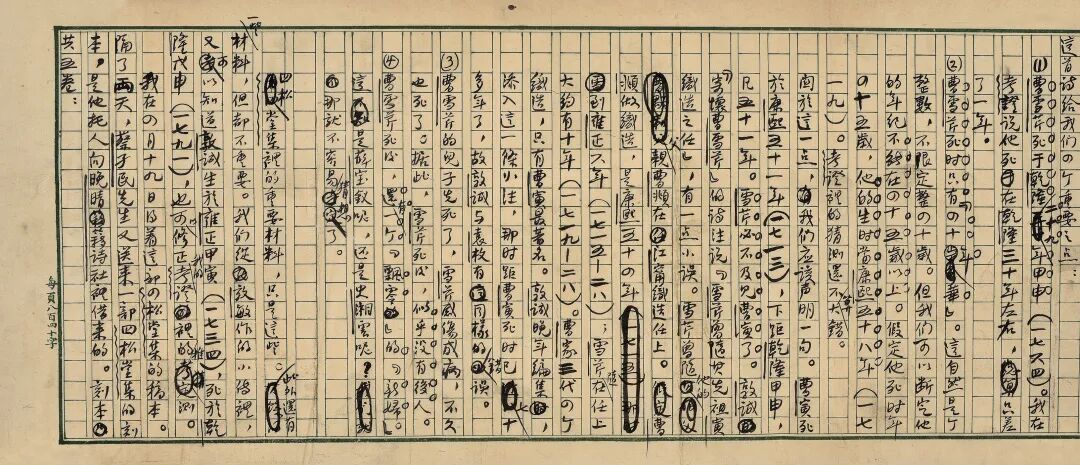 這首詩給我們の个重要之点：
(1)曹雪芹死于乾隆廿九年甲申（一七六四）。我在
考證說他死于在乾隆三十年左右，只差
了一年。
(2)曹雪芹死時只有『の十年華』。這自然是个
整數，不限定整の十歲。但我們可以斷定他
的年紀不能在の十五歲以上。假定他死時年
の十五歲，他的生時當康熙五十八年（一七
一九）。考證裡的猜測還不算大錯。
關於這一点，我們應該声明一句。曹寅死
於康熙五十一年（一七一三），下距乾隆甲申，
凡五十一年。雪芹必不及見曹寅了。敦誠
『寄懷曹雪芹』的詩注說『雪芹曾隨其先祖寅
織造之任』，有一点小誤。雪芹曾隨他的父
親曹頫在江甯織造任上。曹
頫做織造，是康熙五十の年
到雍正六年（一七一五—二八）；雪芹隨在任上
大約有十年（一七一九—二八）。曹家三代の个
織造，只有曹寅最著名。敦誠晚年編集，
添入這一條小注，那時距曹寅死時已七十
多年了，故敦誠与袁枚有同樣的錯誤。
(3)曹雪芹的兒子先死了，雪芹感傷成病，不久
也死了。据此，雪芹死後，似乎沒有後人。
(4)曹雪芹死後，還有一个『飄零』的『新婦』。
這是薛宝釵呢，還是史湘雲呢？
那就不容易猜想了。
四松堂集裡的重要材料，只是這些。此外還有
一些材料，但却不重要。我們從敦敏作的小傳裡，
又可以知道敦誠生於雍正甲寅（一七三四），死於乾
隆戊申（一七九一），也可修正我的考證裡的推測。
我在の月十九日得着這部の松堂集的稿本。
隔了兩天，蔡孑民先生又送來一部四松堂集的刻
本，是他託人向晚晴簃詩社裡借來的。刻本
共五卷：
每頁八百四十字